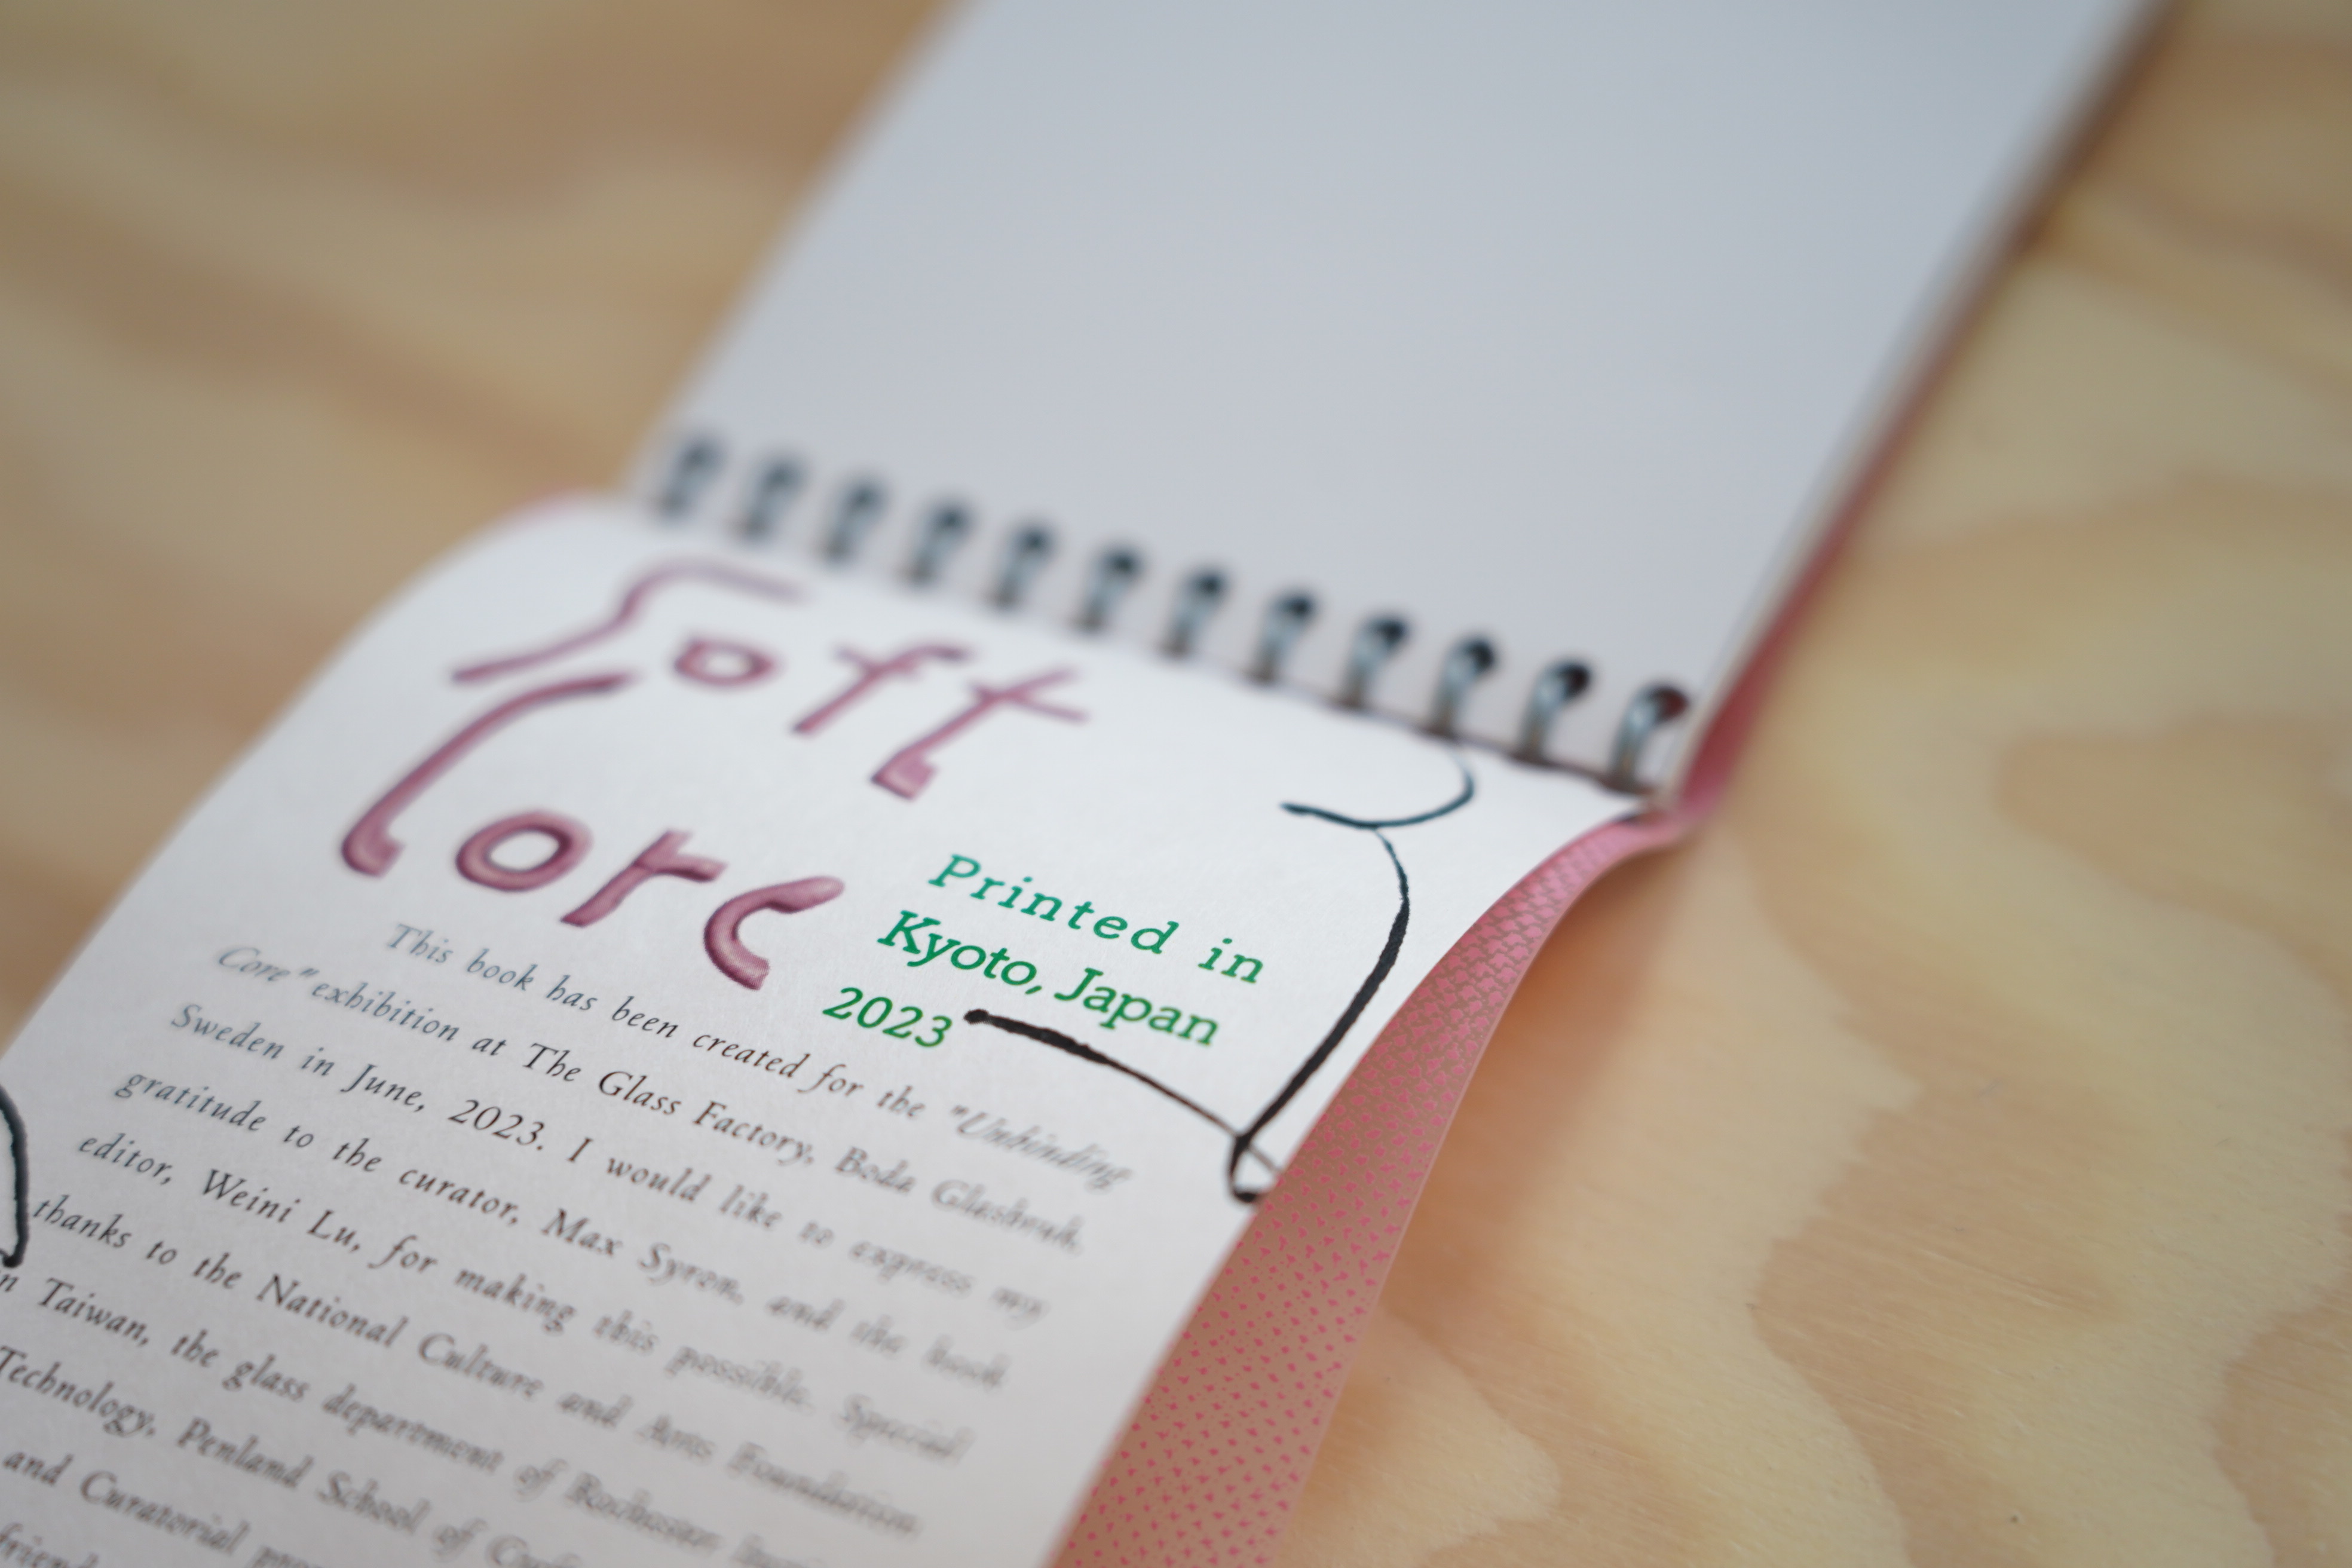 Soft
Core
Printed in
Kyoto, Japan
2023
This book has been created for the "Unbinding
Core" exhibition at The Glass Factory, Boda Glasbruk,
Sweden in June, 2023. I would like to express my
gratitude to the curator, Max Syron, and the book
editor, Weini Lu, for making this possible. Special
thanks to the National Culture and Arts Foundation
in Taiwan, the glass department of Rochester
Technology, Penland School of
and Curatorial
friend